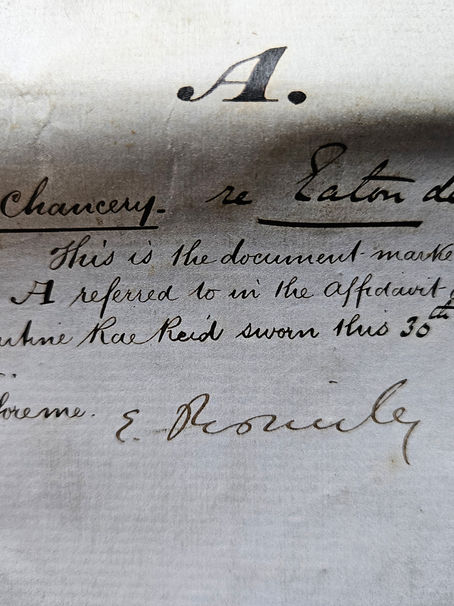 A.
Chancery. re Eaton de
This is the document marke
A referred to in the affidavit
Rae Reid sworn this 30th
E. Romilly